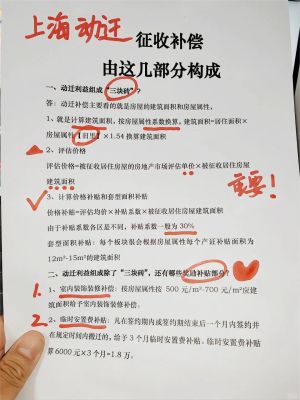 上海动迁
征收补偿
由这几部分构成
一、动迁利益组成“三块砖”？
答：动迁补偿主要看的就是房屋的建筑面积和房屋属性，
1、就是计算建筑面积，按房屋属性系数换算，建筑面积=居住面积×
房屋属性【旧里】×1.54 换算建筑面积
2、评估价格
评估价格=被征收居住房屋的房地产市场评估单价×被征收居住房屋
建筑面积
重要！
3、计算价格补贴和套型面积补贴
价格补贴=评估均价×补贴系数×被征收居住房屋建筑面积
由于补贴系数各区是不同，补贴系数一般为 30%
套型面积补贴：每个板块很会根据房屋属性每个产证补贴面积为
12m²-15m²的建筑面积
二、动迁利益组成除了“三块砖”，还有哪些奖励补贴部分？
1、室内装饰装修补偿：按房屋属性按 500 元/m²-700 元/m²应建
筑面积给予室内装饰装修补偿。
2、临时安置费补贴：凡在签约期内或签约期结束后一个月内签约并
在规定时间内搬迁的，给予 3 个月临时安置费补贴，临时安置费补贴
算 6000 元×3 个月=1.8 万。